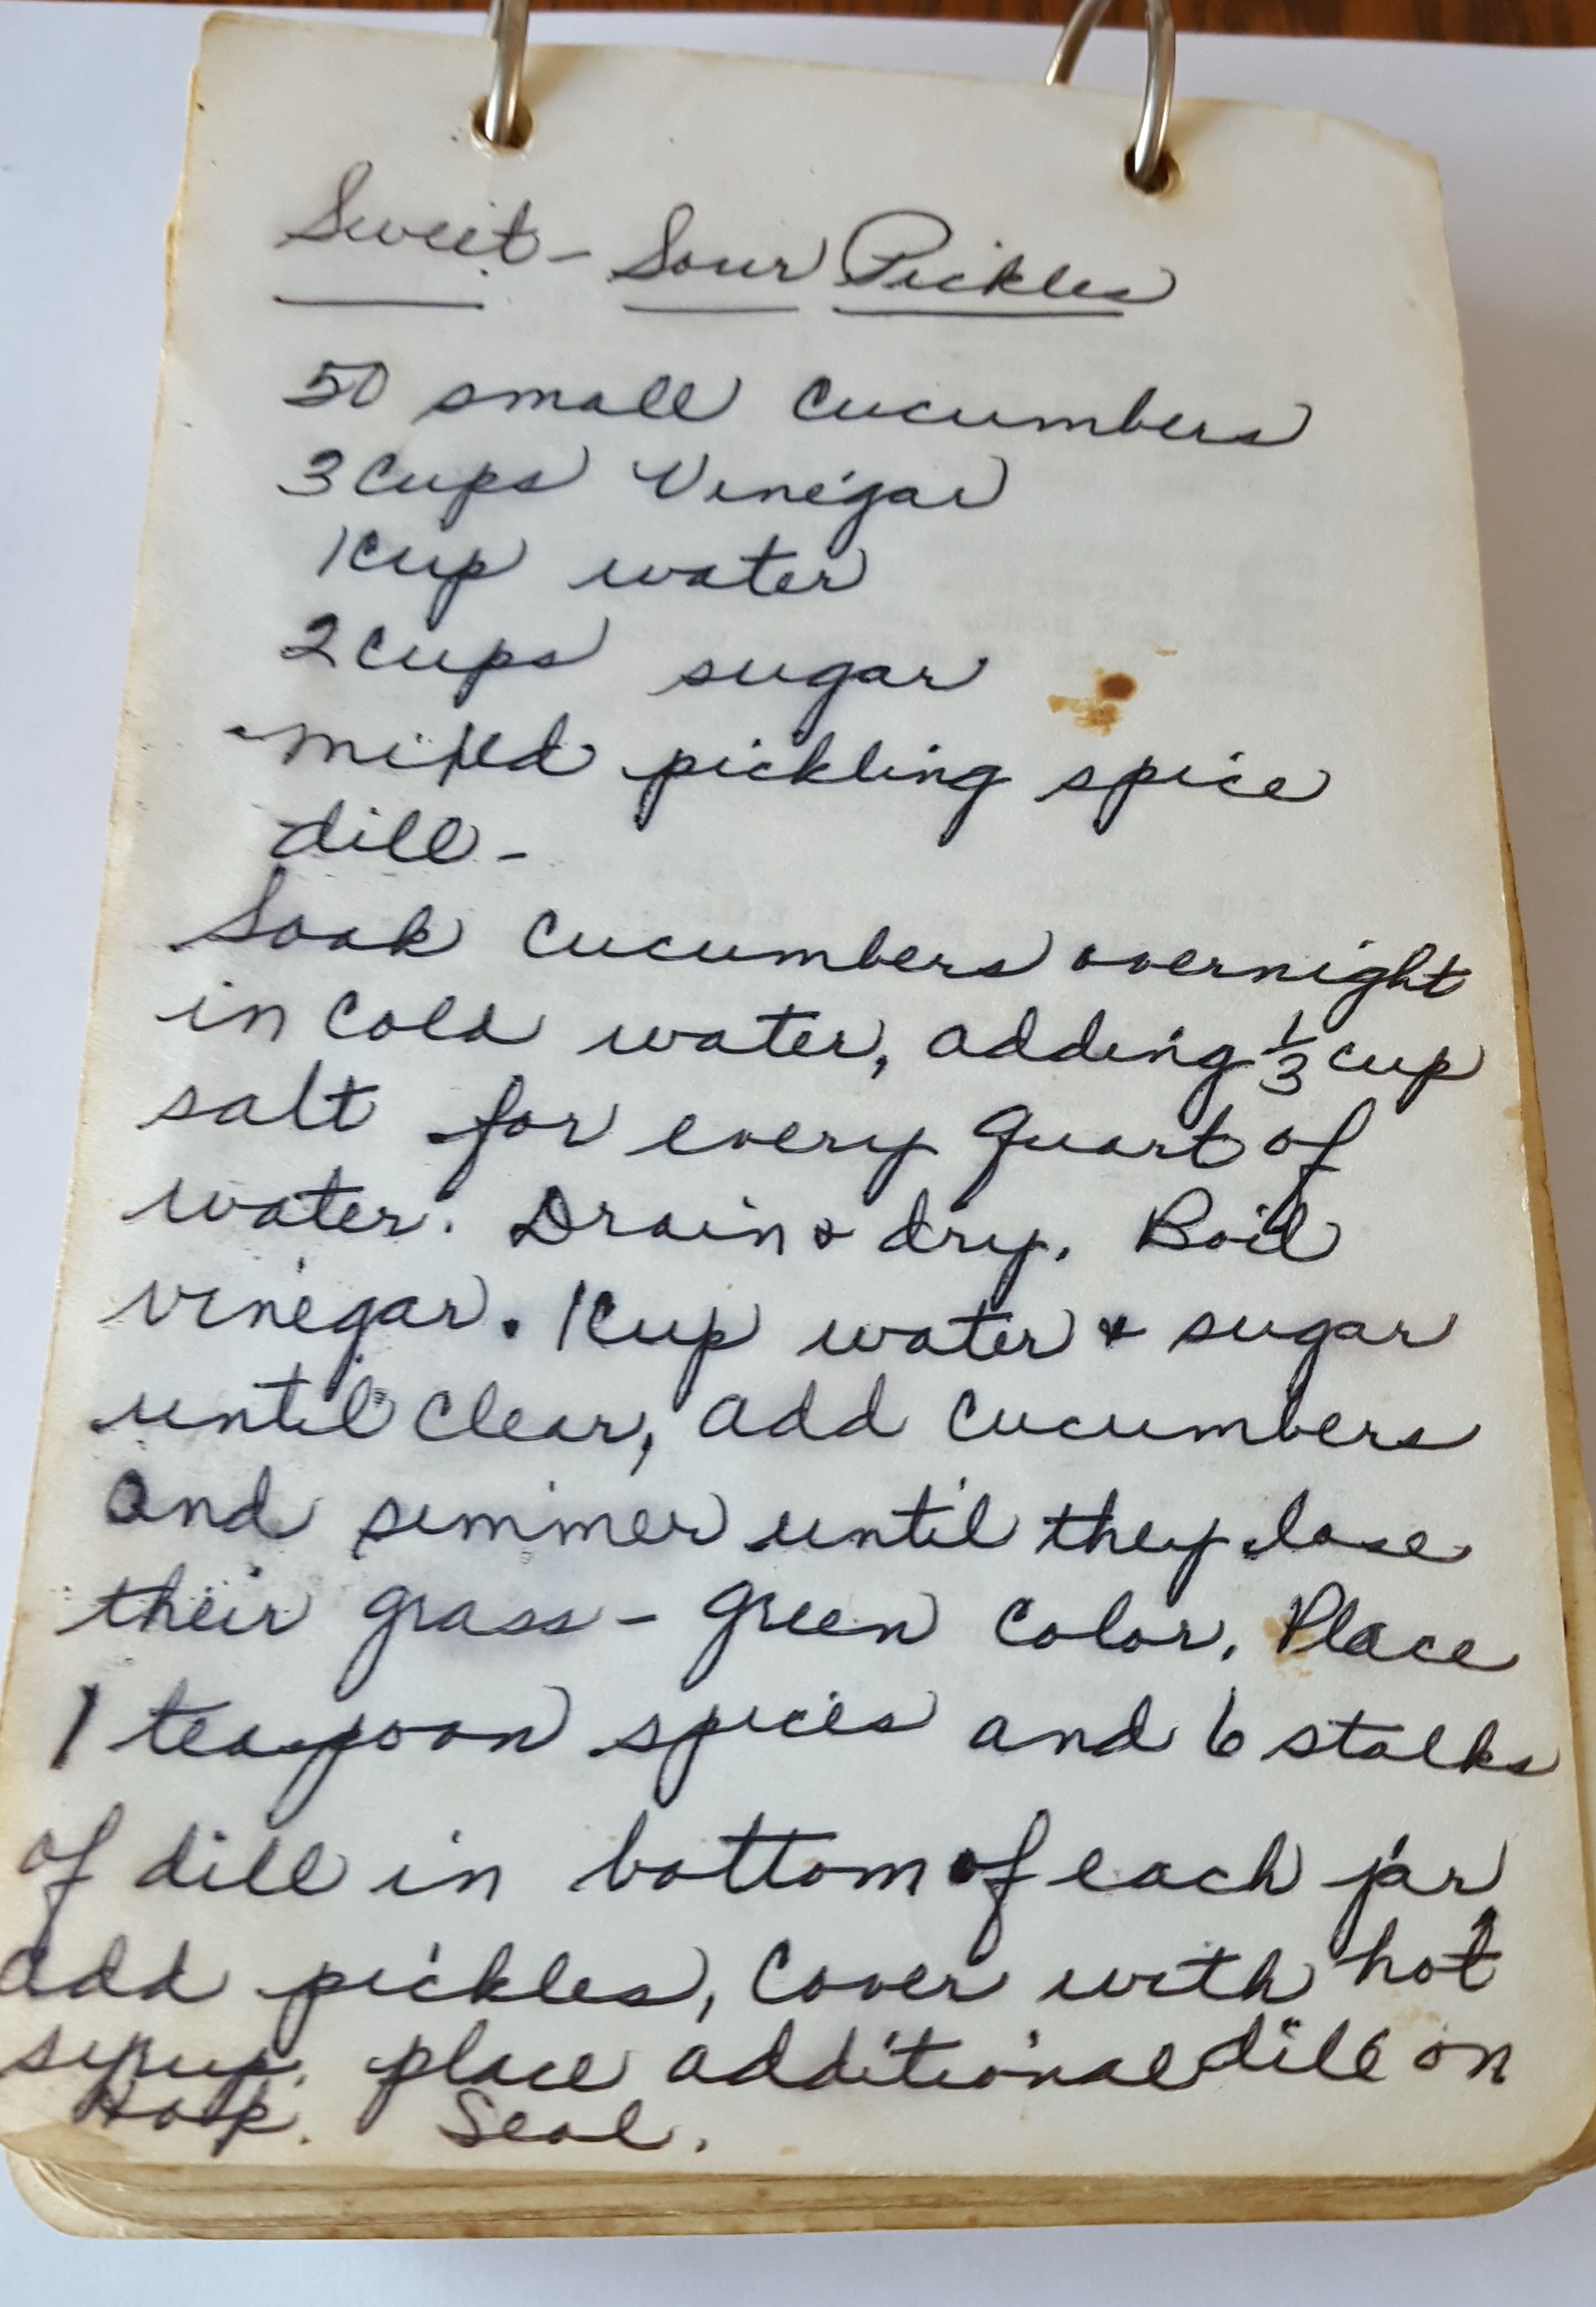 Sweet - Sour Pickles
50 small cucumbers
3 cups Vinegar
1 cup water
2 cups sugar
mixed pickling spice
dill -
Soak cucumbers overnight
in cold water, adding 1/3 cup
salt for every quart of
water. Drain & dry. Boil
vinegar. 1 cup water & sugar
until clear, add cucumbers
and simmer until they lose
their grass - green color. Place
1 teaspoon spices and 6 stalks
of dill in bottom of each jar
add pickles, cover with hot
syrup. place additional dill on
top. Seal.